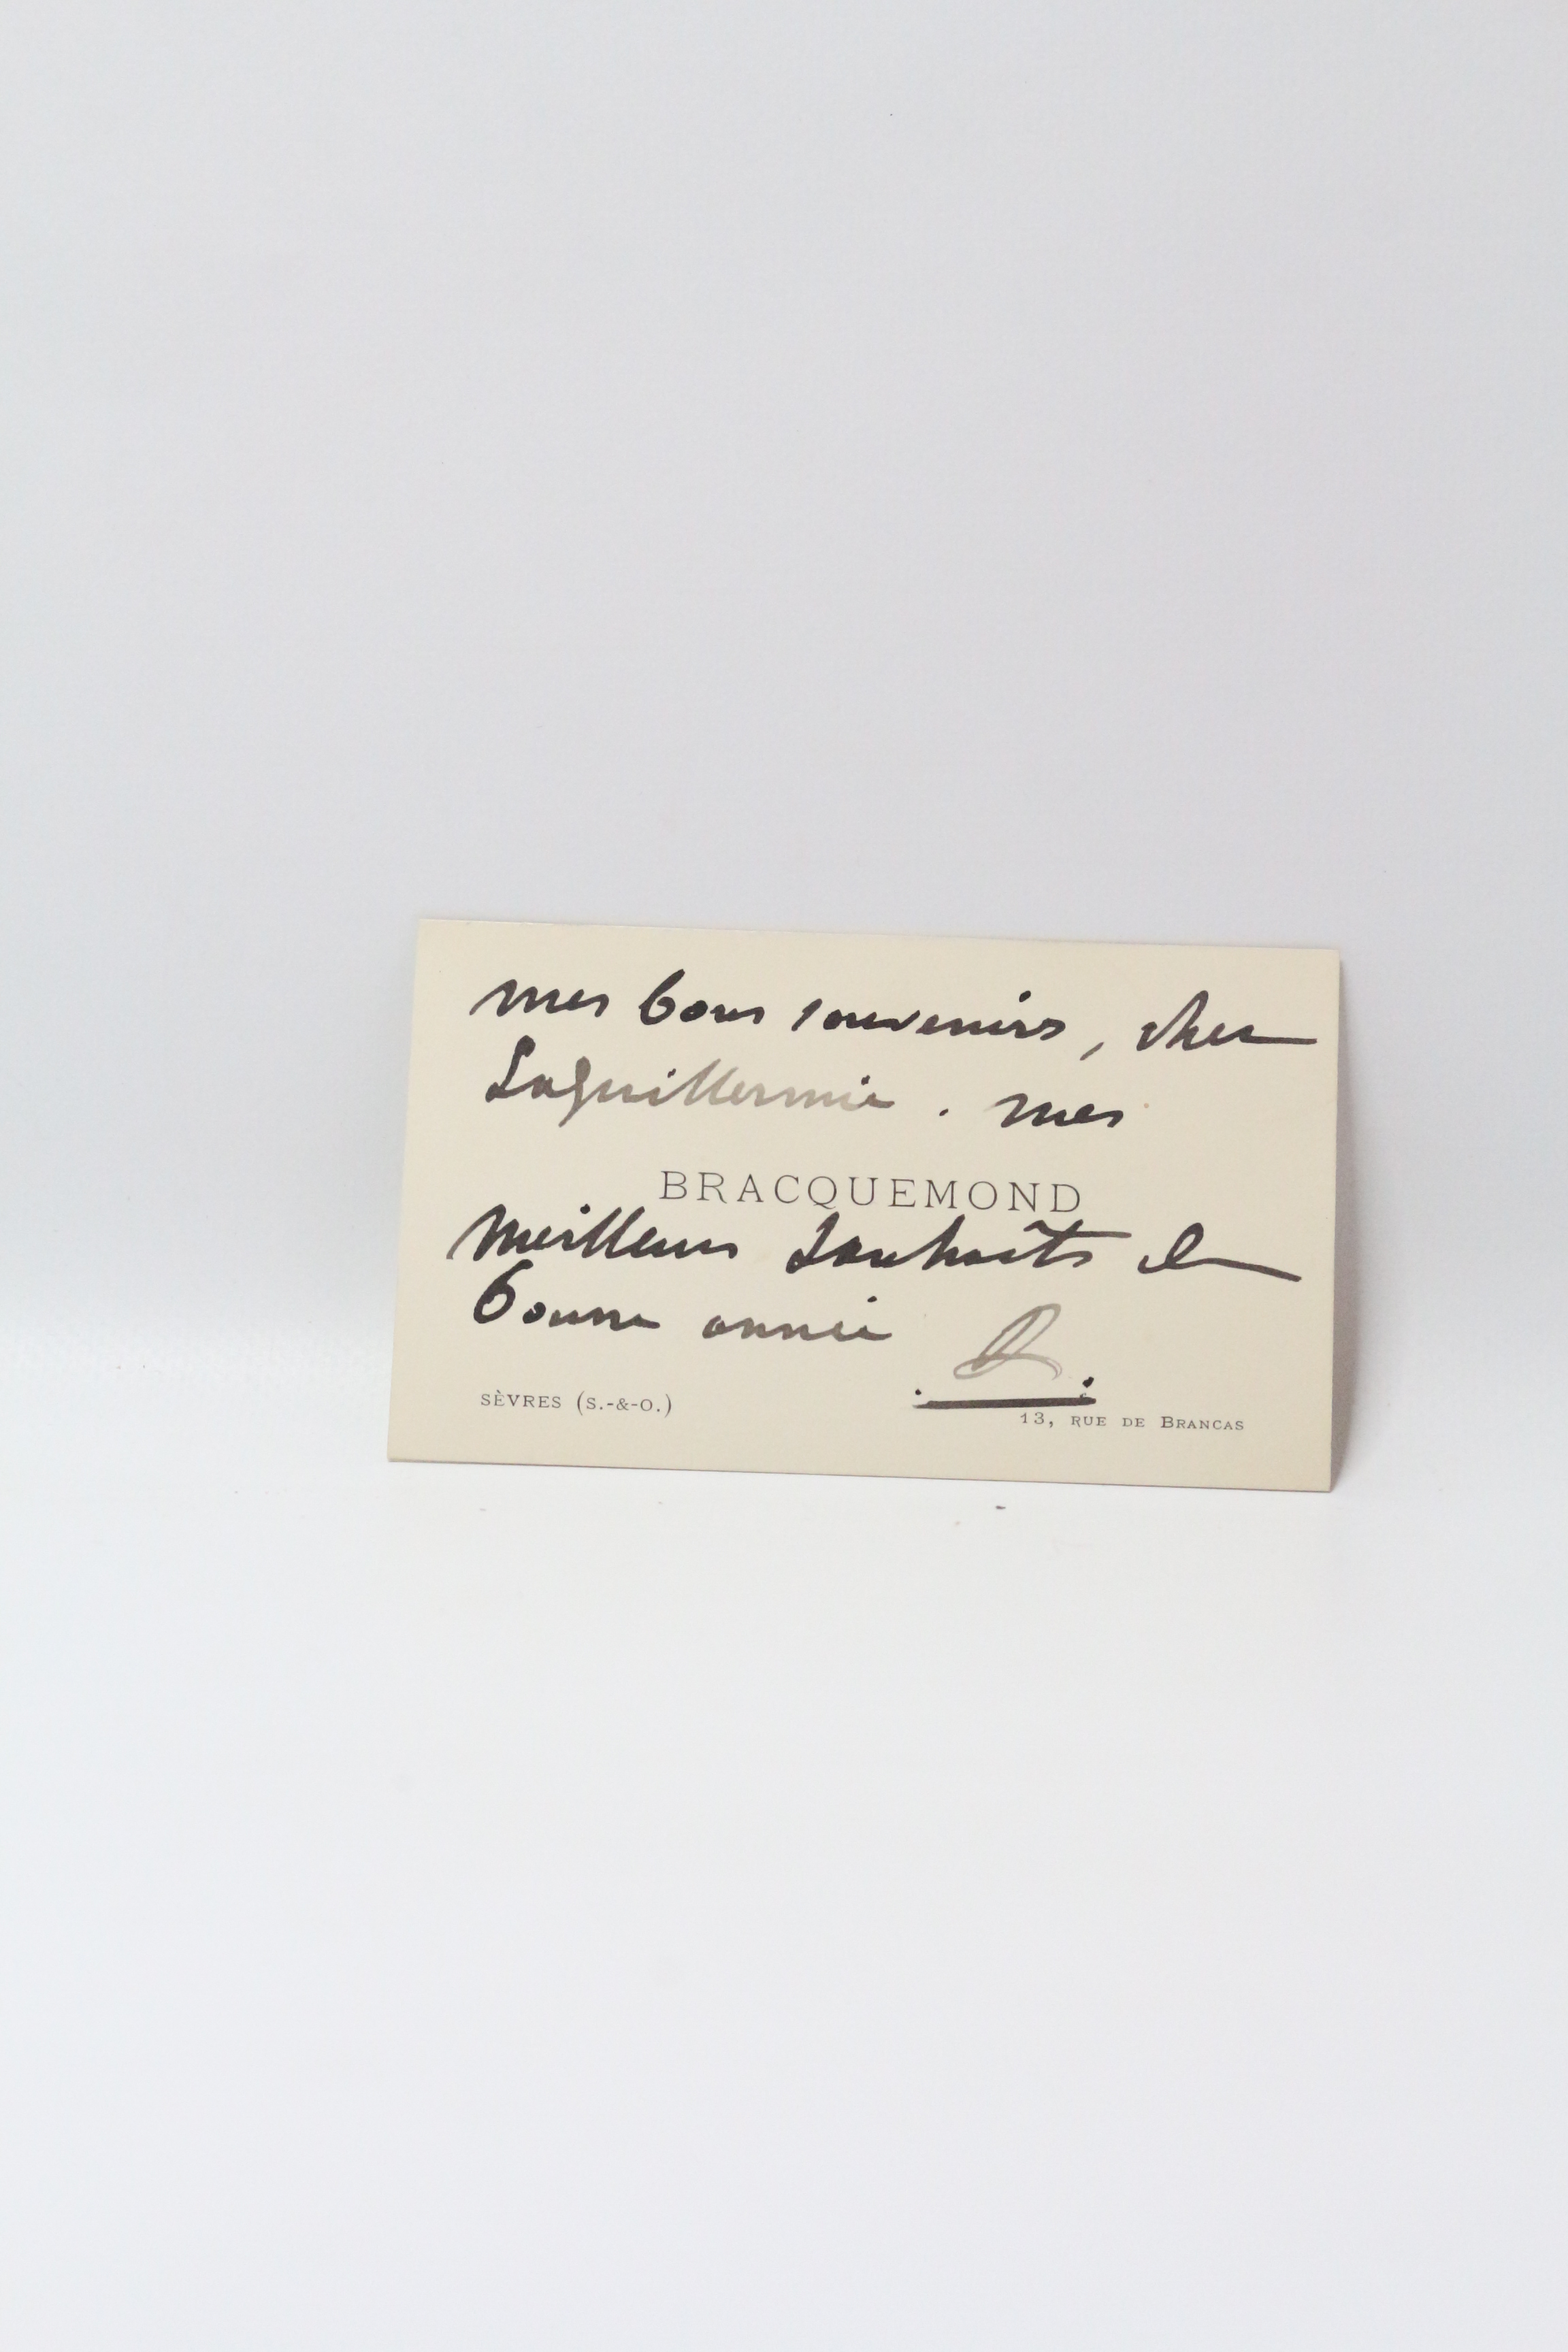 mes bons souvenirs, cher
Laguillermie. mes
BRACQUEMOND
meilleurs souhaits de
bonne année
B.
SÈVRES (S.-&-O.)
13, RUE DE BRANCAS